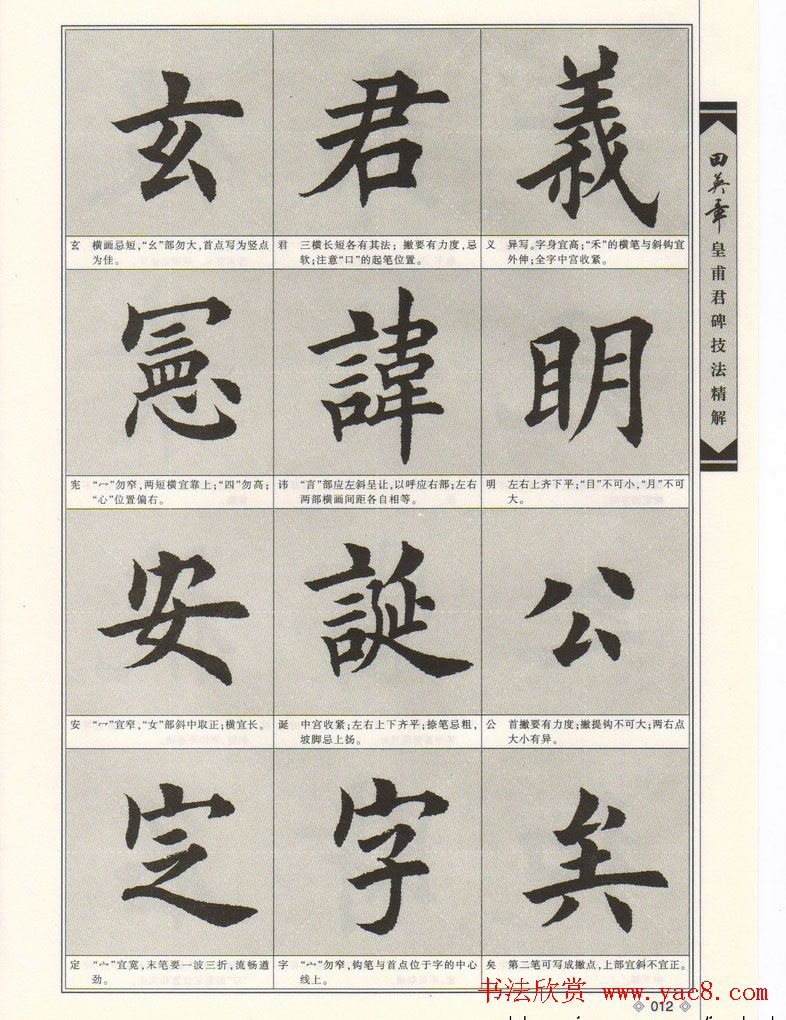 玄
君
義
玄 横画忌短,“幺”部勿大,首点写为竖点
为佳。
君 三横长短各有其法;撇要有力度,忌
软;注意“口”的起笔位置。
义 异写。字身宜高;“禾”的横笔与斜钩宜
外伸;全字中宫收紧。
憲
諱
明
宪 “冖”勿窄,两短横宜靠上;“四”勿高;
“心”位置偏右。
讳 “言”部应左斜呈让,以呼应右部;左右
两部横画间距各自相等。
明 左右上齐下平;“目”不可小,“月”不可
大。
安
誕
公
安 “宀”宜窄,“女”部斜中取正;横宜长。
诞 中宫收紧;左右上下齐平;捺笔忌粗,
坡脚忌上扬。
公 首撇要有力度;撇提钩不可大;两右点
大小有异。
定
字
矣
定 “宀”宜宽,末笔要一波三折,流畅遒
劲。
字 “宀”勿窄,钩笔与首点位于字的中心
线上。
矣 第二笔可写成撇点,上部宜斜不宜正。
田英章皇甫君碑技法精解
书法欣赏 www.yac8.com
012